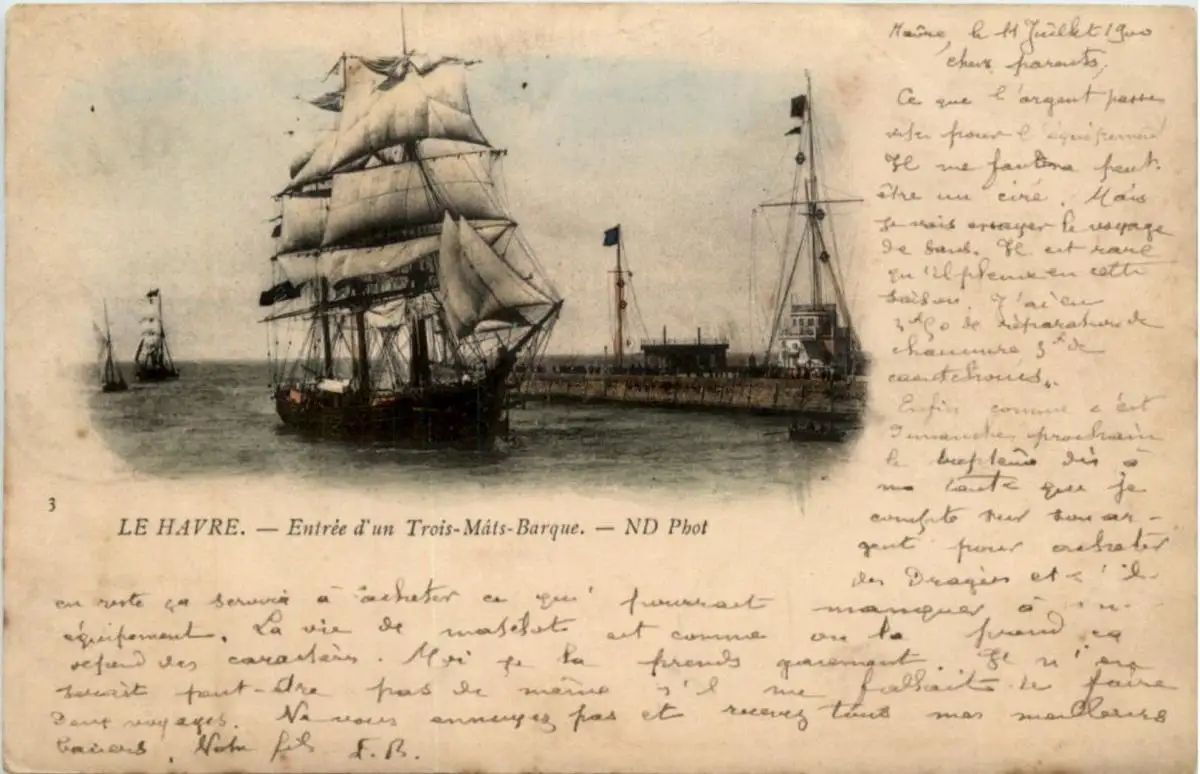 Havre, le 11 Juillet 1900
chers parents,
Ce que l'argent passe
vite pour l'équipement
Il me faudra peut-
être un ciré. Mais
je vais essayer le voyage
de sans. Il est rare
qu'il pleuve en cette
saison. J'ai eu
de réparation de
chaussure 5 f de
caoutchoucs.
Enfin comme c'est
Dimanche prochain
le baptême dis à
ma tante que je
compte sur son ar-
gent pour acheter
des Dragées et s'il
3
LE HAVRE. — Entrée d'un Trois-Mâts-Barque. — ND Phot
en reste ça servira à acheter ce qui pourrait manquer à m.
équipement. La vie de matelot est comme on la prend ça
dépend des caractères. Moi je la prends gaiement. Il n'en
serait peut-être pas de même s'il me fallait faire
deux voyages. Ne vous ennuyez pas et recevez tous mes meilleurs
baisers. Votre fils F. B.